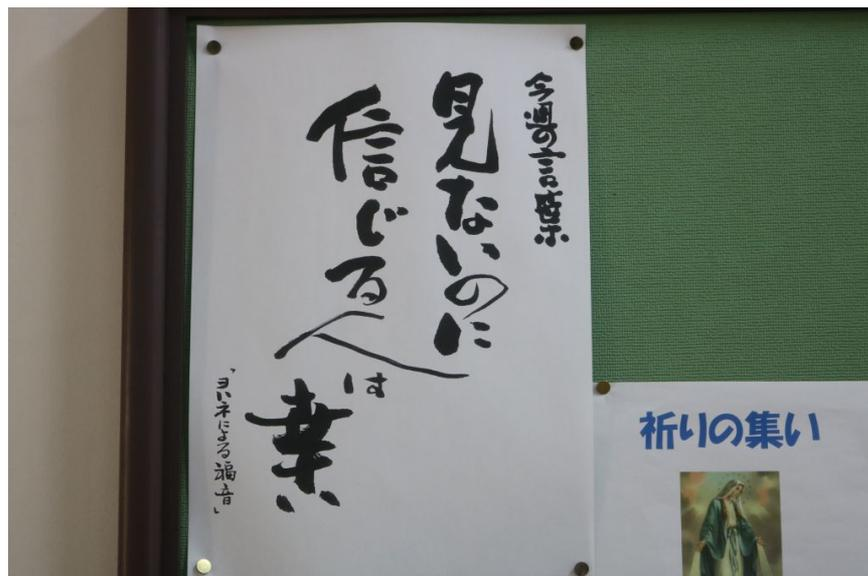 今週の言葉
見ないのに
信じる人は
幸い
「ヨハネによる福音」
祈りの集い